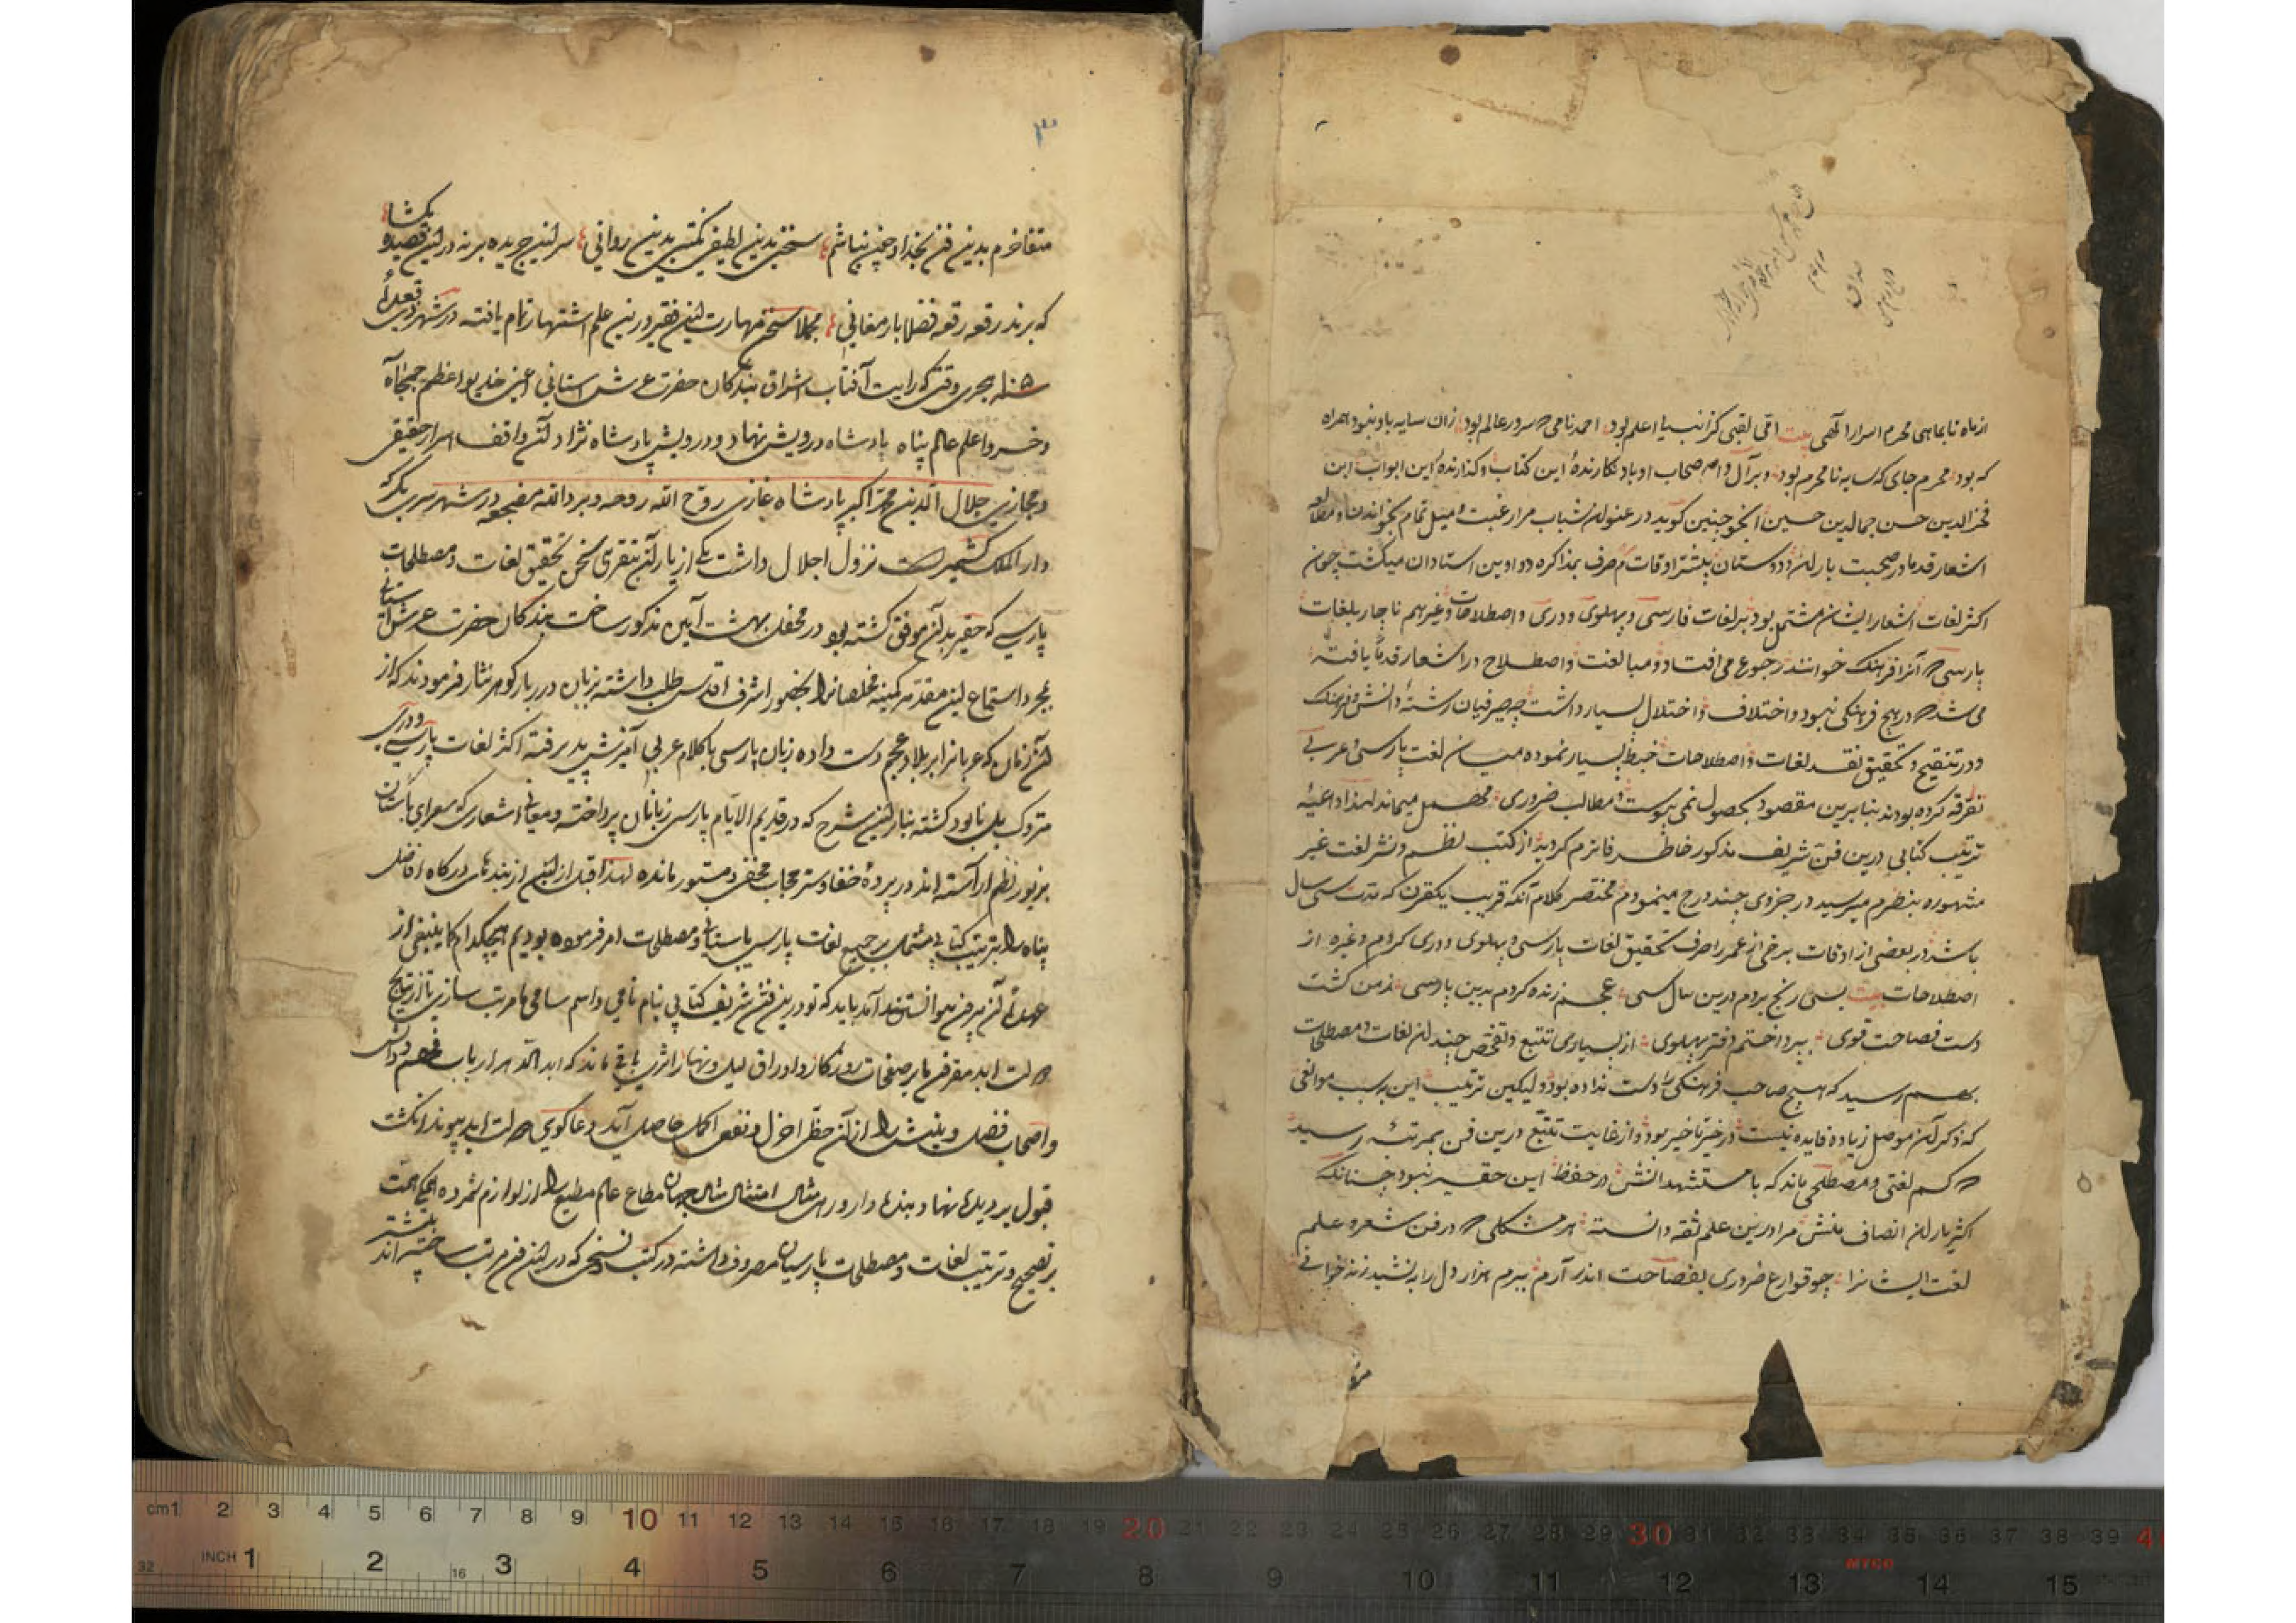 از ماه تا بماهی محرم اسرار الهی بیت امی لقبی کز انبیا اعلم بود احمد نامی که سرور عالم بود زان سایه باو نبود همراه
که بود محرم جای که سایه نامحرم بود و بر آل و اصحاب او باد نکارندهٔ این کتاب و کذارندهٔ این ابواب ابن
فخر الدین حسن جمال الدین حسین انجو چنین کوید در عنوان شباب مرا رغبت و میل تمام بخواندن و مطالعه
اشعار قدما در صحبت یاران و دوستان بیشتر اوقات صرف بمذاکره دواوین استادان میکشت چون
اکثر لغات اشعار ایشان مشتمل بود بر لغات فارسی و پهلوی و دری و اصطلاحات و غیرهم ناچار بلغات
پارسی که آنرا فرهنک خوانند رجوع می افتاد و مبا لغت و اصطلاح در اشعار قدما یافته
می شد که در هیچ فرهنکی نبود و اختلاف و اختلال بسیار داشت چه صیرفیان رشتهٔ دانش و فرهنک
و در تنقیح و تحقیق نقد لغات و اصطلاحات خبط بسیار نموده میان لغت پارسی و عربی
تفرقه نکرده بودند بنابرین مقصود بحصول نمی پیوست و مطالب ضروری مهمل میماند لهذا داعیهٔ
ترتیب کتابی درین فن شریف مذکور خاطر فاترم کردید از کتب نظم و نثر لغت غیر
مشهوره بنظرم میرسید در جزوی چند درج مینمودم مختصر کلام آنکه قریب یکقرن که مدت سی سال
باشد در بعضی از اوقات برخی از عمر را صرف تحقیق لغات پارسی و پهلوی و دری کردم و غیره از
اصطلاحات بیت بسی رنج بردم درین سال سی عجم زنده کردم بدین پارسی ز من کشت
دست فصاحت قوی بپرداختم دفتر پهلوی از بسیاری تتبع و تفحص چندان لغات و مصطلحات
بهم رسید که هیچ صاحب فرهنکی را دست نداده بود و لیکن ترتیب این بسبب موانعی
که ذکر آن موصل زیاده فایده نیست در حیز تاخیر بود و از غایت تتبع درین فن بمرتبهٔ رسید
که کم لغتی و مصطلحی ماند که با مستشهد انش در حفظ این حقیر نبود چنانکه
اکثر یاران انصاف منش مرا درین علم ثقه دانسته هر مشکلی که در فن شعر و علم
لغت ایشانرا چو قوارع ضروری بفصاحت اندر آرم ببرم هزار دل را به نشید زند خوانی
متفاخرم بدین فن بخدا و چون نباشم سخنی بدین لطیفی نکتی بدین روانی سر این جریده بر نه در این قصیده بکشا
که برند رقعه رقعه فضلا بارمغانی مجملا سخن مهارت این فقیر درین علم اشتهار تمام یافته در شهر ذی قعدهٔ
هجری وقتی که رایت آفتاب اشراق بندکان حضرت عرش استانی اعنی خدیو اعظم جمجاه
و خسرو اعلم عالم پناه پادشاه درویش نهاد و درویش پادشاه نژاد آن واقف اسرار حقیقی
و مجازی جلال الدین محمد اکبر پادشاه غازی روح الله روحه و برد الله مضجعه در شهر سری نکر که
دار الملک کشمیر است نزول اجلال داشت یکی از یاران بتقریبی سخن تحقیق لغات و مصطلحات
پارسی که حقیر بدان موفق کشته بود در محفل بهشت آیین مذکور ساخت بندکان حضرت عرش آستانی
بمجرد استماع این مقدمه کمینه مخلصانرا بحضور اشرف اقدس طلب داشته بزبان درربار کوهر نثار فرمودند که از
آن زمان که عربانرا بر بلاد عجم دست داده زبان پارسی با کلام عربی آمیزش پذیرفته اکثر لغات پارسی و دری
متروک بل نابود کشته بنابر این شرح که در قدیم الایام پارسی زبانان پرداخته و معانی اشعاری که شعرای باستان
بزیور نظم آراسته اند در پردهٔ خفا و ستر حجاب مخفی و مستور مانده لهذا قبل از این از بندهای درکاه افاضل
پناه را بترتیب کتابی مشتمل بر جمیع لغات پارسی باستانی و مصطلحات امر فرموده بودیم هیچکدام کما ینبغی از
عهدهٔ آن بیرون نتوانستند آمد باید که تو درین فن شریف کتابی بنام نامی و اسم سامی ما مرتب سازی تا از نتایج
دولت ابد مقرون ما بر صفحات روزکار و اوراق لیل و نهار اثری باقی ماند که ابد الدهر ارباب فهم و دانش
و اصحاب فضل و بینش را از آن حظ اجزل و نفع اکمل حاصل آید دعاکوی دولت ابد پیوند انکشت
قبول بر دیدها نهاد و بنده وار و مثال امتثال مثال جهان مطاع عالم مطیع را از لوازم شمرده همکی همت
بر تصحیح و ترتیب لغات و مصطلحات پارسیان مصروف داشته در کتب نسخی که در این فن مرتب ساخته اند بیشتر